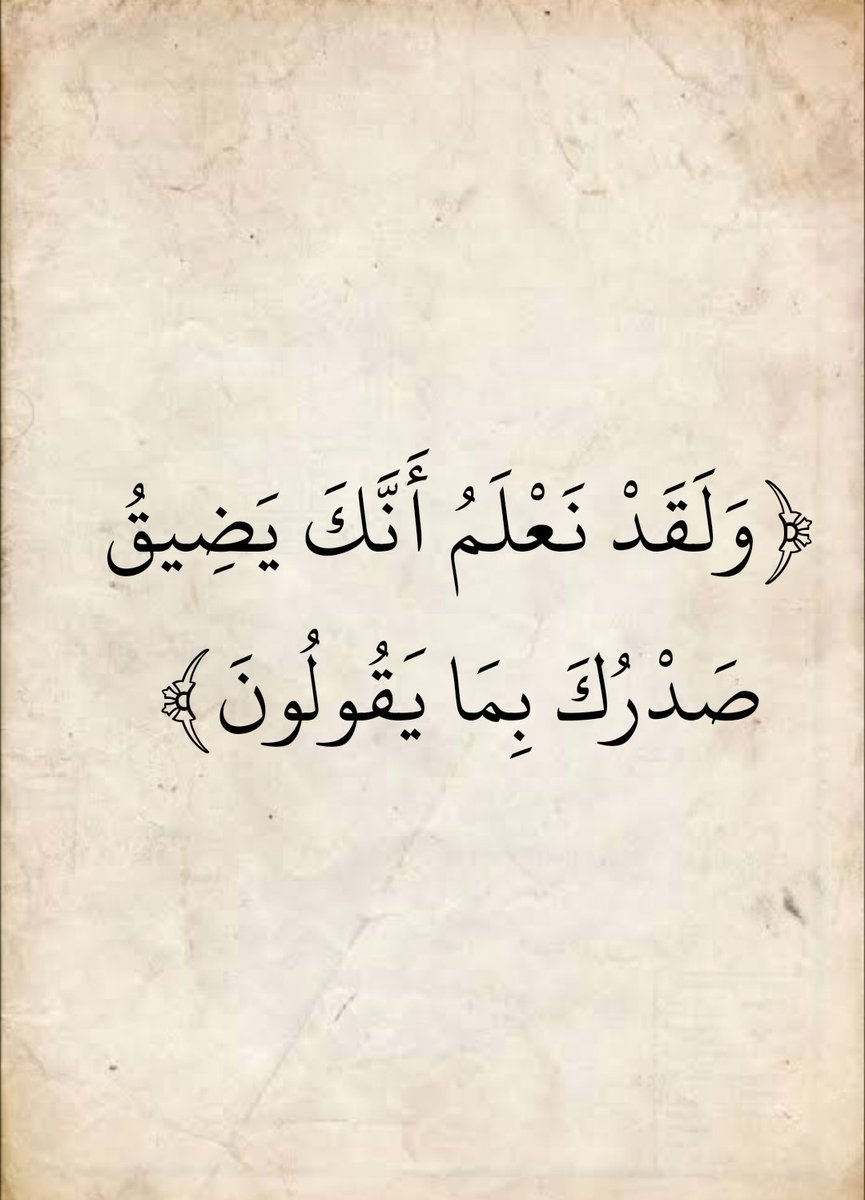 ﴿وَلَقَدْ نَعْلَمُ أَنَّكَ يَضِيقُ
صَدْرُكَ بِمَا يَقُولُونَ﴾